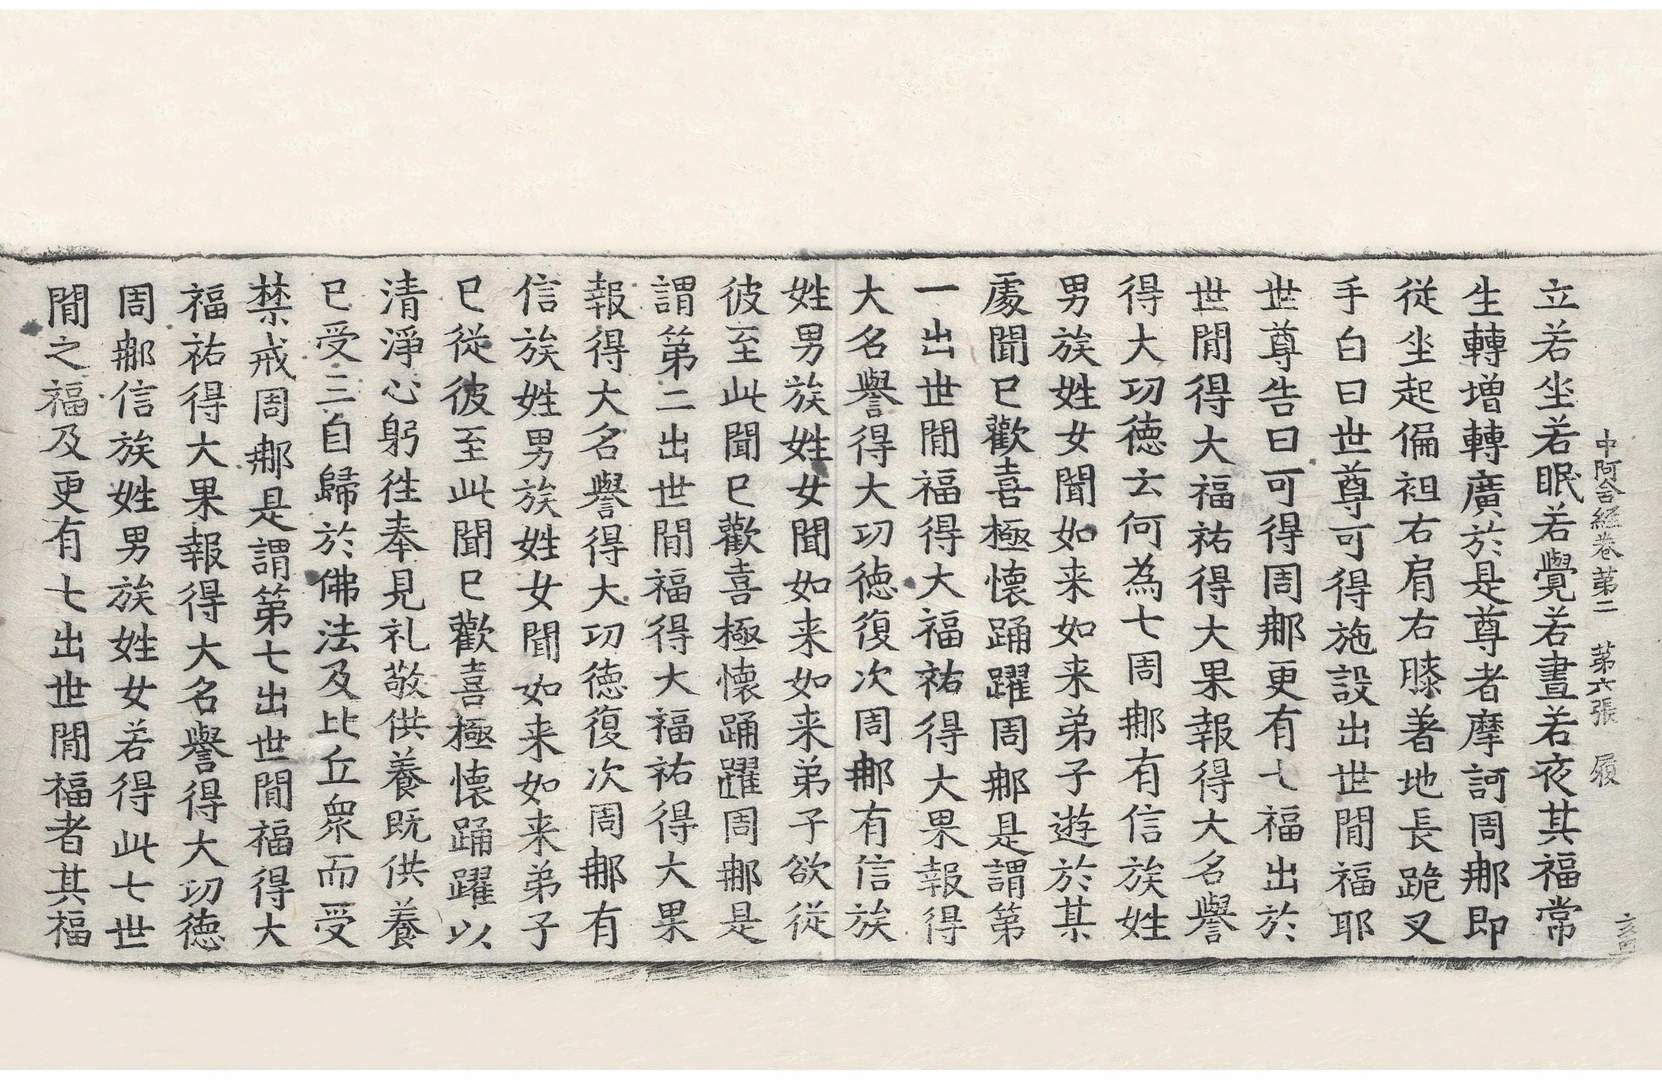 中阿含経卷第二 第六張 履
立若坐若眠若覺若晝若夜其福常
生轉增轉廣於是尊者摩訶周那即
從坐起偏袒右肩右膝著地長跪叉
手白曰世尊可得施設出世閒福耶
世尊告曰可得周那更有七福出於
世閒得大福祐得大果報得大名譽
得大功德云何為七周那有信族姓
男族姓女聞如来如来弟子遊於某
處聞已歡喜極懷踊躍周那是謂第
一出世閒福得大福祐得大果報得
大名譽得大功徳復次周那有信族
姓男族姓女聞如来如来弟子欲從
彼至此聞已歡喜極懷踊躍周那是
謂第二出世閒福得大福祐得大果
報得大名譽得大功徳復次周那有
信族姓男族姓女聞如来如来弟子
已從彼至此聞已歡喜極懷踊躍以
清淨心躬往奉見礼敬供養既供養
已受三自歸於佛法及比丘衆而受
禁戒周那是謂第七出世閒福得大
福祐得大果報得大名譽得大功徳
周那信族姓男族姓女若得此七世
閒之福及更有七出世閒福者其福